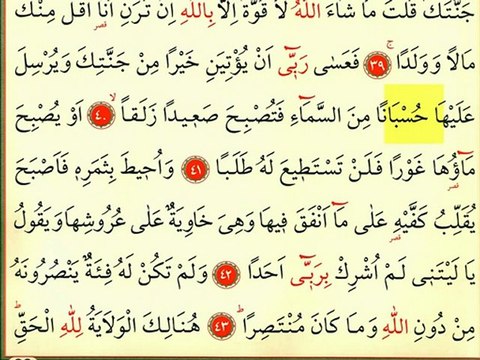 جَنَّتَكَ قُلْتَ مَا شَٓاءَ اللّٰهُ لَا قُوَّةَ اِلَّا بِاللّٰهِ اِنْ تَرَنِ اَنَا۬ اَقَلَّ مِنْكَ
مَالًا وَوَلَدًا ۚ ﴿٣٩﴾ فَعَسٰى رَبّ۪ٓي اَنْ يُؤْتِيَنِ خَيْرًا مِنْ جَنَّتِكَ وَيُرْسِلَ
عَلَيْهَا حُسْبَانًا مِنَ السَّمَٓاءِ فَتُصْبِحَ صَع۪يدًا زَلَقًا ۙ ﴿٤٠﴾ اَوْ يُصْبِحَ
مَٓاؤُ۬هَا غَوْرًا فَلَنْ تَسْتَط۪يعَ لَهُ طَلَبًا ﴿٤١﴾ وَاُح۪يطَ بِثَمَرِه۪ فَاَصْبَحَ
يُقَلِّبُ كَفَّيْهِ عَلٰى مَٓا اَنْفَقَ ف۪يهَا وَهِيَ خَاوِيَةٌ عَلٰى عُرُوشِهَا وَيَقُولُ
يَا لَيْتَن۪ي لَمْ اُشْرِكْ بِرَبّ۪ٓي اَحَدًا ﴿٤٢﴾ وَلَمْ تَكُنْ لَهُ فِئَةٌ يَنْصُرُونَهُ
مِنْ دُونِ اللّٰهِ وَمَا كَانَ مُنْتَصِرًا ۜ ﴿٤٣﴾ هُنَالِكَ الْوَلَايَةُ لِلّٰهِ الْحَقِّ ۜ